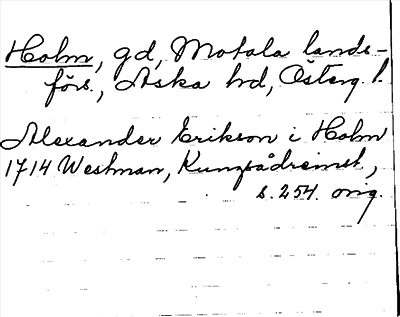 Holm, gd, Motala lands-
förs., Aska hd, Österg. l.
Alexander Erikson i Holm
1714 Westman, Kungsådreinst,
s. 254. orig.